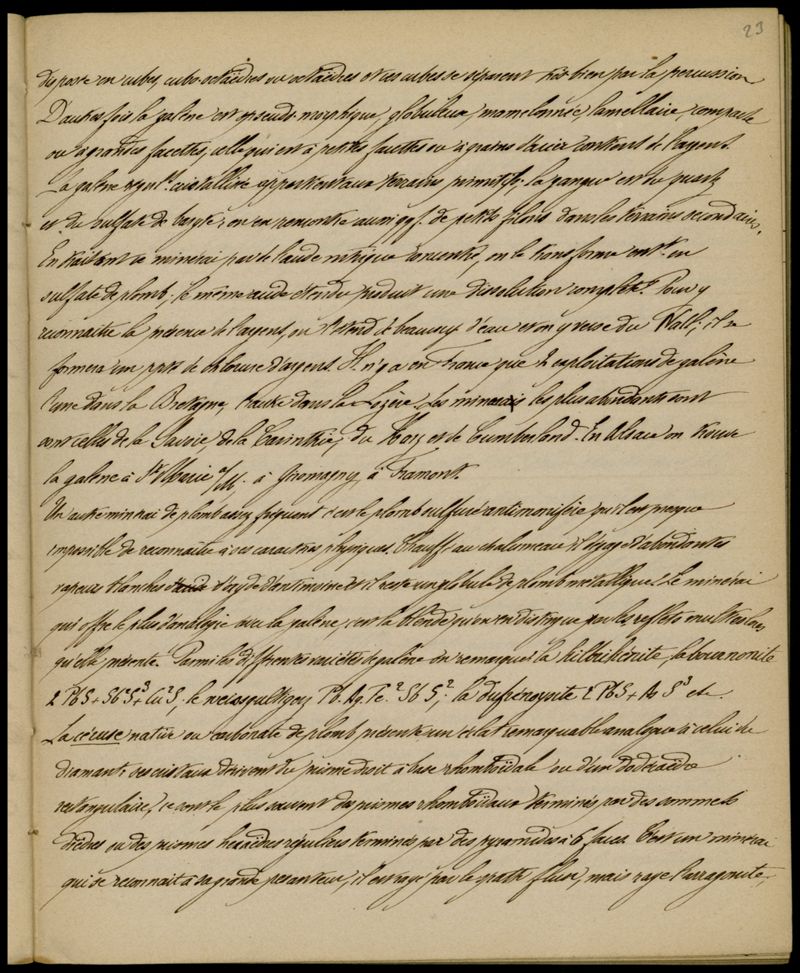 23
disposée en cubes, cubo-octaèdres ou octaèdres et ces cubes se séparent très bien par la percussion
D'autres fois la galène est pseudo-morphique, globuleuse, mamelonnée, lamellaire, compacte
ou à grandes facettes, celle qui est à petites facettes ou à grains d'acier contient de l'argent.
La galène cristallisée appartient aux terrains primitifs; la gangue est du quartz
et du sulfate de baryte; on en rencontre aussi qqf. de petits filons dans les terrains secondaires.
En traitant ce minérai par de l'acide nitrique concentré, on le transforme ent.t en
sulfate de plomb; le même acide étendu produit une dissolution complète. Pour y
reconnaître la présence de l'argent, on l'étend de beaucoup d'eau et on y verse du NaCl; il se
formera un ppté de chlorure d'argent. Il n'y a en France que 2 exploitations de galène
l'une dans la Bretagne, l'autre dans la Lozère. Les minerais les plus abondants sont
sont celles de la Savoie, de la Carinthie, du Harz et de Cumberland. En Alsace on trouve
la galène à Ste Marie a/M. à Giromagny, à Framont.
Un autre minérai de plomb assez fréquent c'est le plomb sulfuré antimonifère qu'il est presque
impossible de reconnaître à ses caractères physiques. Chauffé au chalumeau il dégage d'abondantes
vapeurs blanches d'oxyde d'antimoine et il reste un globule de plomb métallique. Le minérai
qui offre le plus d'analogie avec la galène, c'est la blende qu'on en distingue par les reflets multicolores
qu'elle présente. Parmi les différentes variétés de galène on remarque la kilbrikenite, la bournonite
2 PbS + Sb²S³ + Cu²S; le weissgultigerz, Pb. Ag. Fe.² Sb S²; la dufrénoysite 2 PbS + As S³ etc.
La céruse native ou carbonate de plomb présente un éclat remarquable analogue à celui du
diamant; ses cristaux dérivent du prisme droit à base rhomboïdale ou d'un dodécaèdre
rectangulaire, ce sont le plus souvent des prismes rhomboïdaux terminés par des sommets
dièdres ou des prismes hexaèdres réguliers terminés par des pyramides à 6 faces. C'est un minérai
qui se reconnait à sa grande pesanteur; il est rayé par le spath fluor, mais raye l'arragonite,